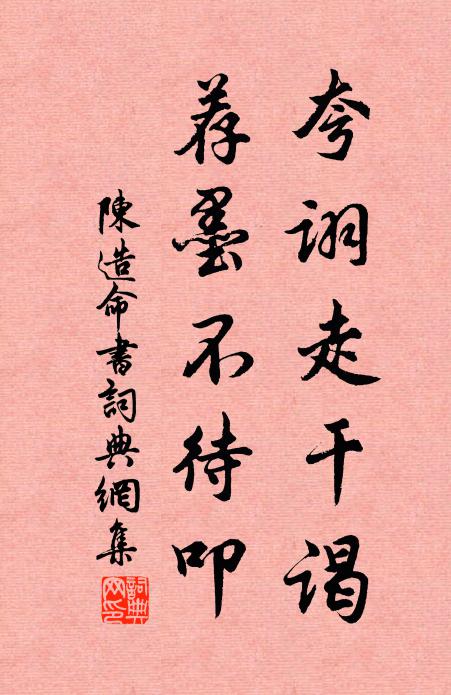 夸詡走干謁
荐墨不待叩
陳造命書詞典網集
詞典网印